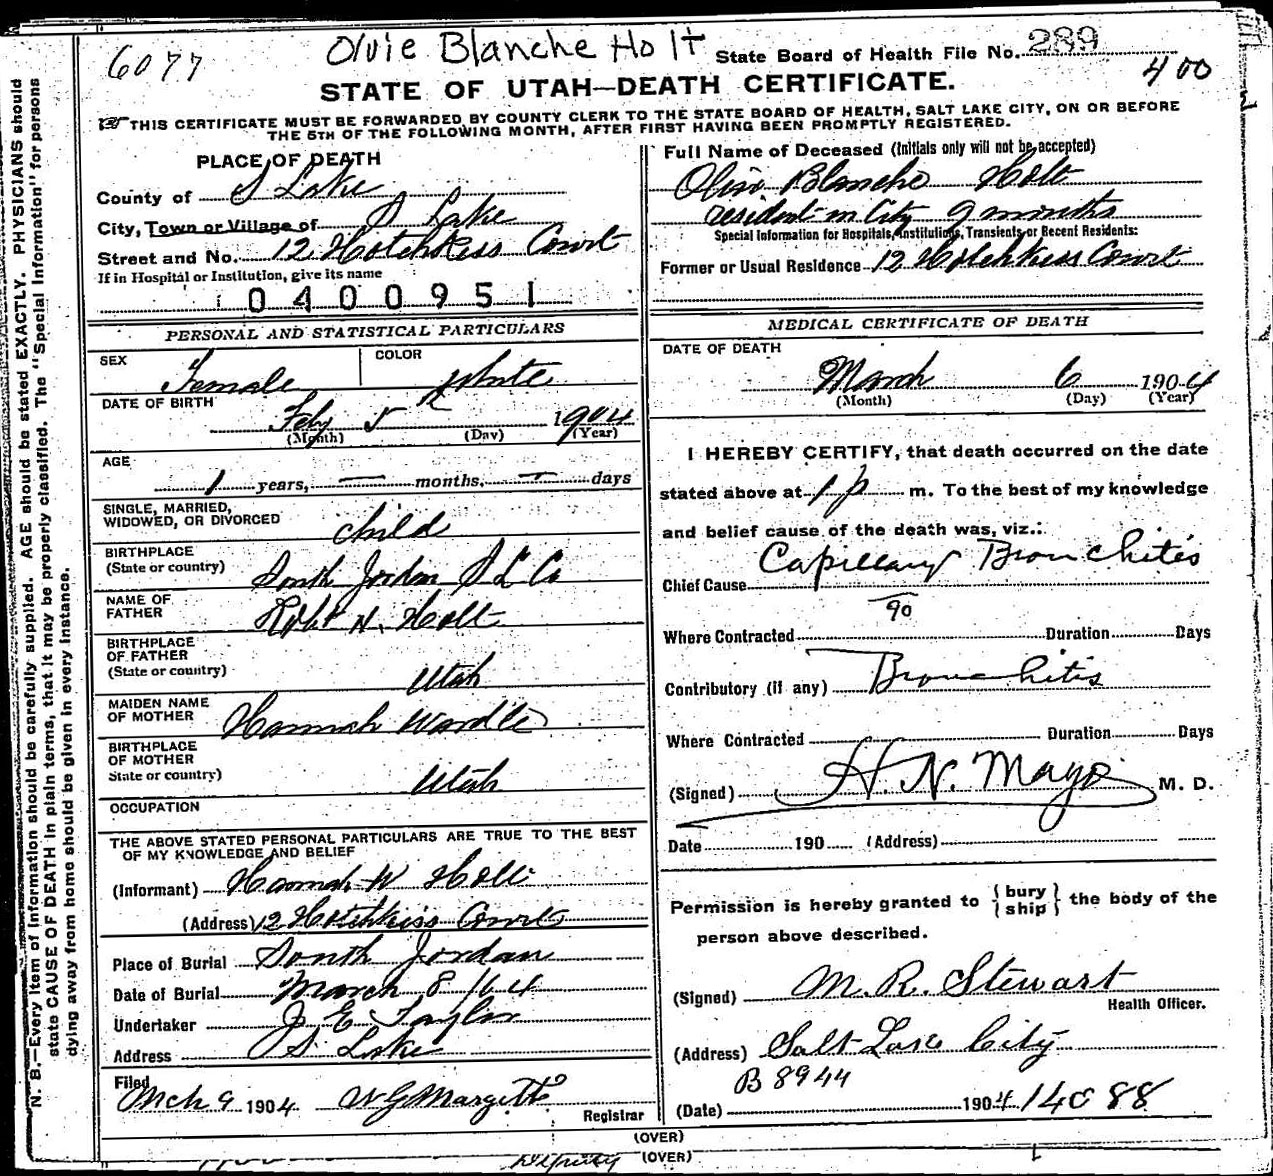 6077 Olvie Blanche Holt State Board of Health File No. 289
400
STATE OF UTAH—DEATH CERTIFICATE.
THIS CERTIFICATE MUST BE FORWARDED BY COUNTY CLERK TO THE STATE BOARD OF HEALTH, SALT LAKE CITY, ON OR BEFORE
THE 5TH OF THE FOLLOWING MONTH, AFTER FIRST HAVING BEEN PROMPTLY REGISTERED.
N. B.—Every item of information should be carefully supplied. AGE should be stated EXACTLY. PHYSICIANS should
state CAUSE OF DEATH in plain terms, that it may be properly classified. The "Special Information" for persons
dying away from home should be given in every instance.
PLACE OF DEATH
County of S Lake
City, Town or Village of S Lake
Street and No. 12 Hotchkiss Court
If in Hospital or Institution, give its name
0400951
PERSONAL AND STATISTICAL PARTICULARS
SEX COLOR
Female White
DATE OF BIRTH
Feby 5 1904
(Month) (Day) (Year)
AGE
1 years, — months, — days
SINGLE, MARRIED,
WIDOWED, OR DIVORCED child
BIRTHPLACE
(State or country) South Jordan S L Co
NAME OF
FATHER Robt N. Holt
BIRTHPLACE
OF FATHER
(State or country) Utah
MAIDEN NAME
OF MOTHER Hannah Wardle
BIRTHPLACE
OF MOTHER
State or country) Utah
OCCUPATION
THE ABOVE STATED PERSONAL PARTICULARS ARE TRUE TO THE BEST
OF MY KNOWLEDGE AND BELIEF
(Informant) Hannah W Holt
(Address) 12 Hotchkiss Court
Place of Burial South Jordan
Date of Burial March 8/04
Undertaker J. E. Taylor
Address S. Lake
Filed
Mch 9 1904 W G Margetts
Registrar
Full Name of Deceased (Initials only will not be accepted)
Olive Blanche Holt
resident in City 9 months
Special Information for Hospitals, Institutions, Transients or Recent Residents:
Former or Usual Residence 12 Hotchkiss Court
MEDICAL CERTIFICATE OF DEATH
DATE OF DEATH
March 6 1904
(Month) (Day) (Year)
I HEREBY CERTIFY, that death occurred on the date
stated above at 1 p m. To the best of my knowledge
and belief cause of the death was, viz.:
Chief Cause Capillary Bronchitis
90
Where Contracted Duration Days
Contributory (if any) Bronchitis
Where Contracted Duration Days
(Signed) H. N. Mayo M. D.
Date 190 (Address)
Permission is hereby granted to { bury ship } the body of the
person above described.
(Signed) M. R. Stewart
Health Officer.
(Address) Salt Lake City
B 8944
(Date) 1904 14088
(OVER)
Deputy (OVER)